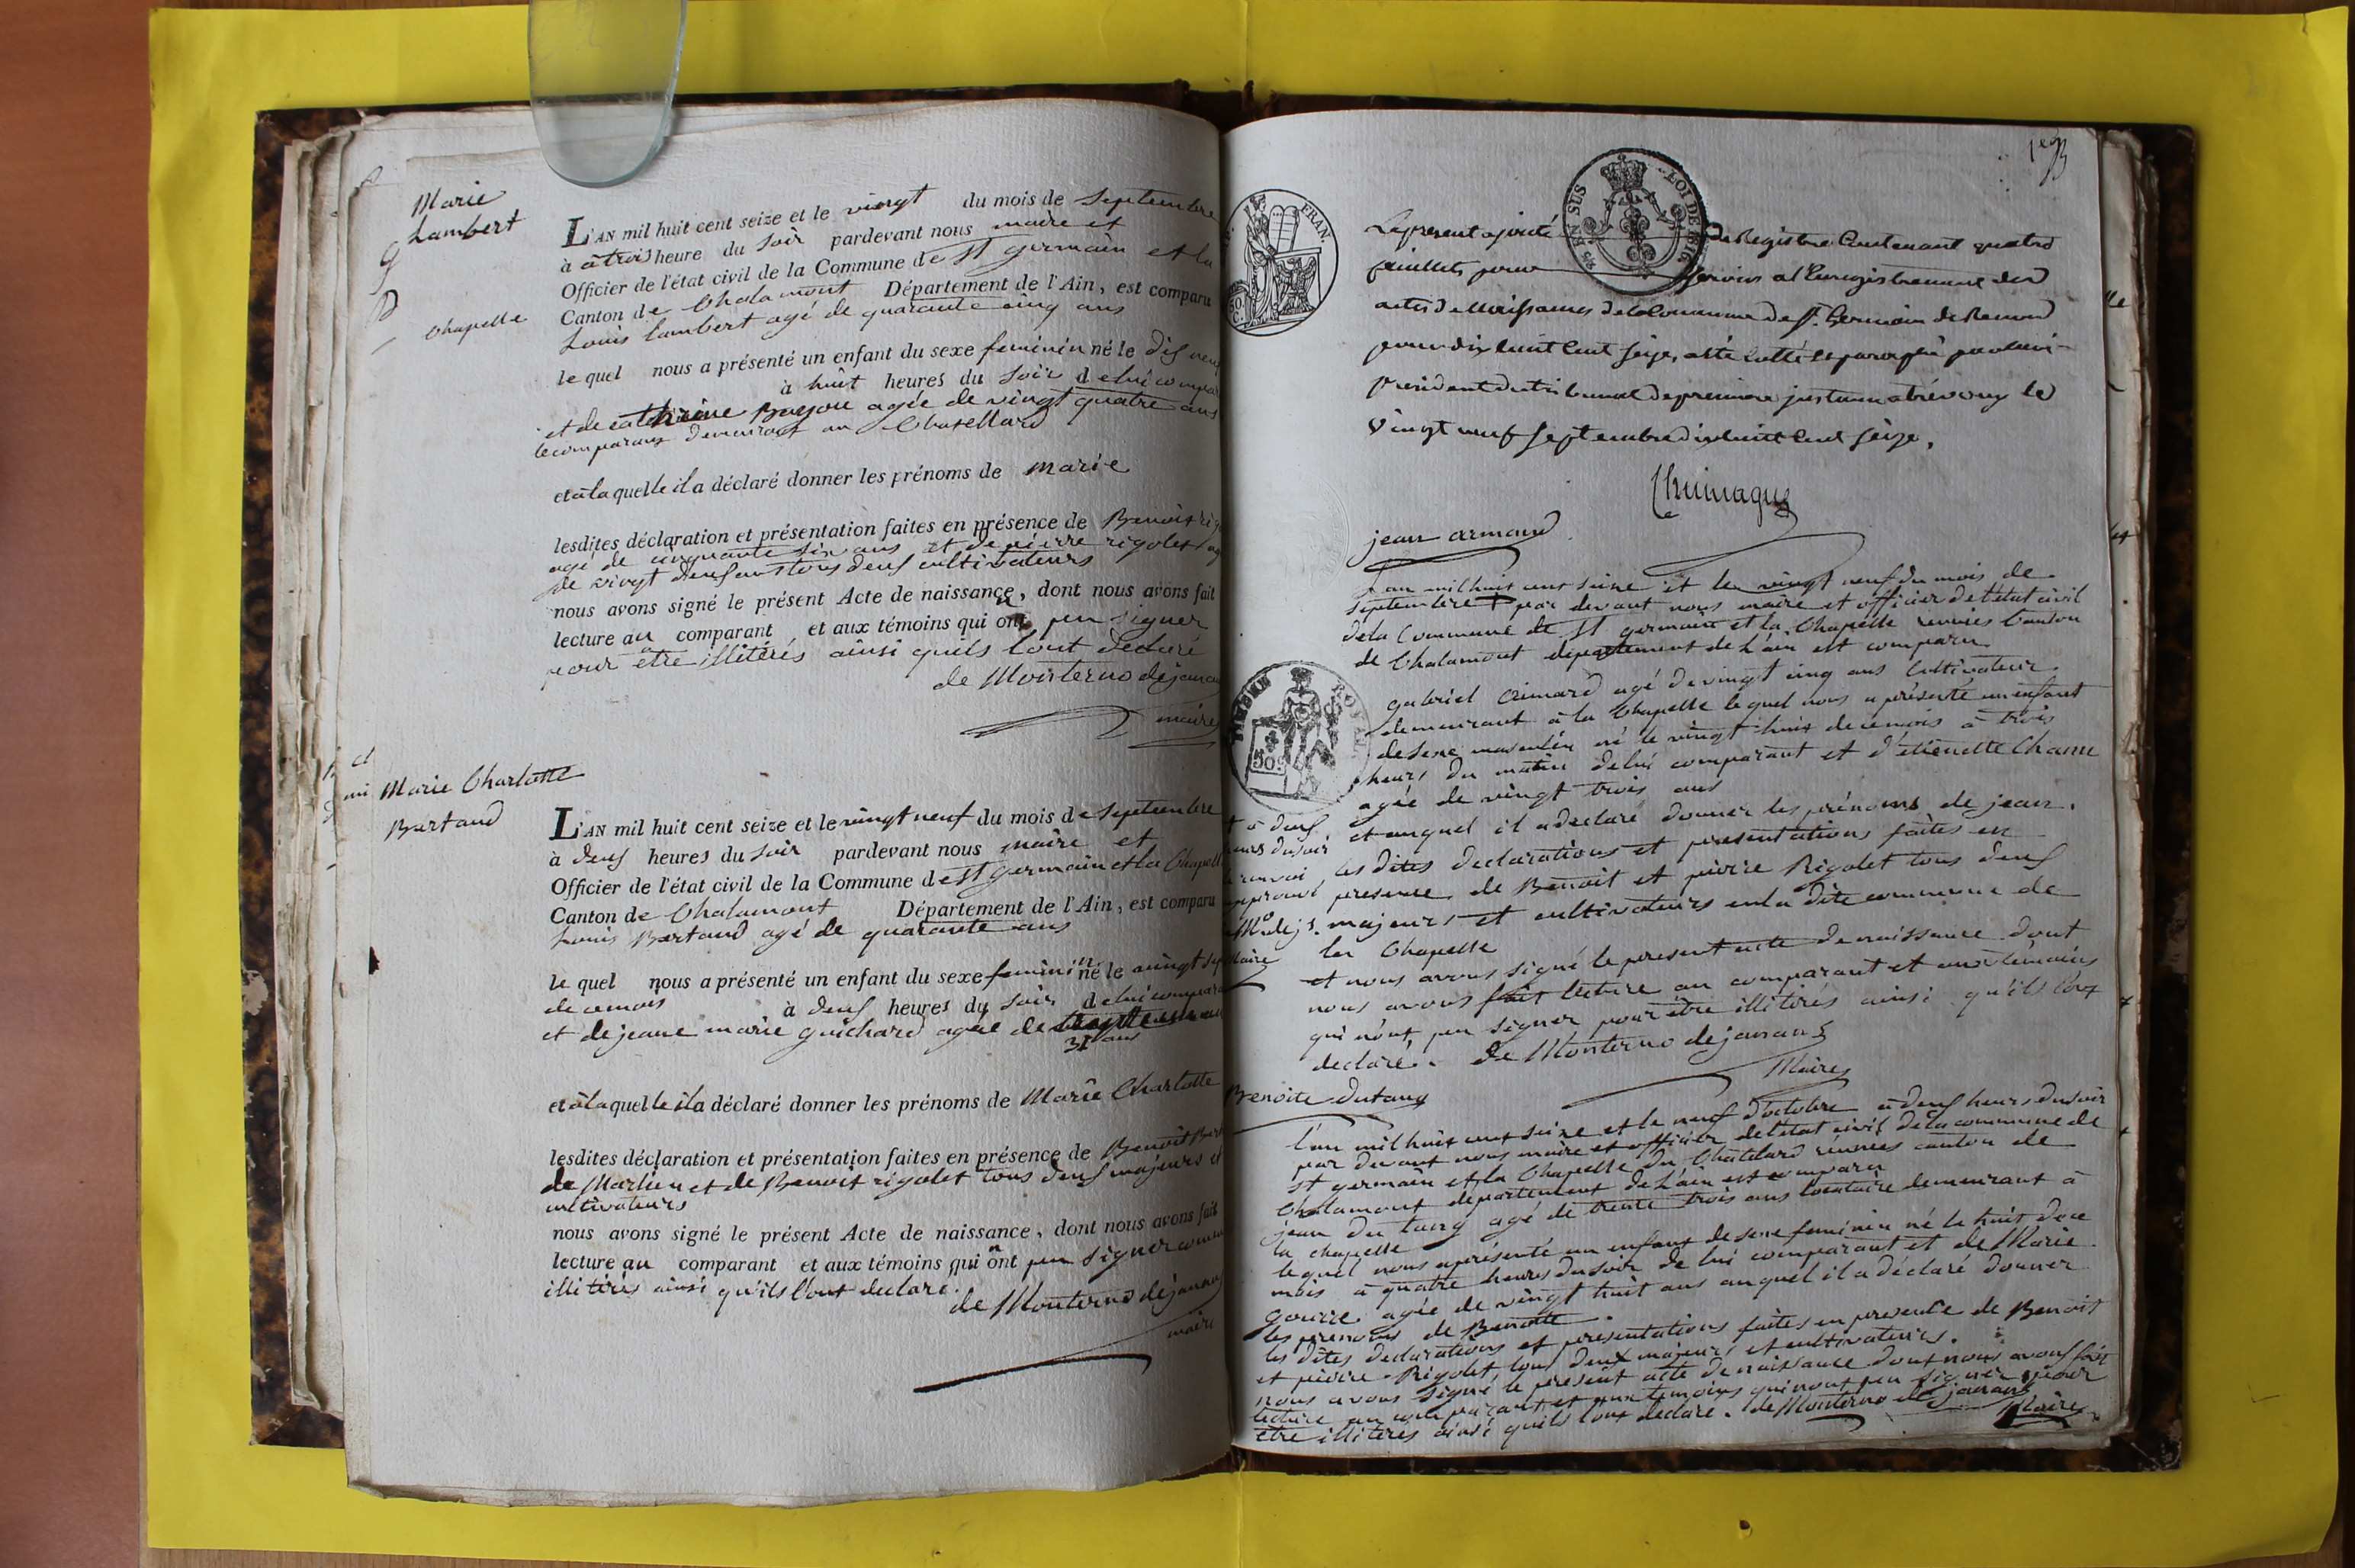 Marie
Lambert
chapelle
L'AN mil huit cent seize et le vingt du mois de Septembre
à à trois heure du soir pardevant nous maire et
Officier de l'état civil de la Commune de St germain et la
Canton de Chalamont Département de l'Ain, est comparu
Louis Lambert agé de quarante cinq ans
le quel nous a présenté un enfant du sexe feminin né le dis neuf
à huit heures du soir de lui compar
et de catherine Bayou agée de vingt quatre ans
le comparans demeurant au Chatellard
et à la quelle il a déclaré donner les prénoms de marie
lesdites déclaration et présentation faites en présence de Benoit rig
agé de cinquante six ans et de pierre rigolet ag
de vingt deuf ans tous deuf cultivateurs
nous avons signé le présent Acte de naissance, dont nous avons fait
lecture au comparant et aux témoins qui nont peu signer
pour être illitérés ainsi quils lont declaré
de Monterno dejauran
maire
Marie Charlotte
Bertaud
L'AN mil huit cent seize et le vingt neuf du mois de Septembre
à deuf heures du soir pardevant nous maire et
Officier de l'état civil de la Commune de St germain et la Chapell
Canton de Chalamont Département de l'Ain, est comparu
Louis Bertaud agé de quarante ans
le quel nous a présenté un enfant du sexe feminin né le vingt sep
de ce mois à deuf heures du soir de lui compara
et de jeane marie guichard agée de
31 ans
et à la quelle il a déclaré donner les prénoms de Marie Charlotte
lesdites déclaration et présentation faites en présence de Benoit Bert
de Marlieu et de Benoit rigolet tous deuf majeurs et
cultivateurs
nous avons signé le présent Acte de naissance, dont nous avons fait
lecture au comparant et aux témoins qui nont peu signer comme
illitérés ainsi qu'ils l'ont declaré.
de Monterno dejauran
maire
1er
FRAN.
50.
C.
EN SUS
LOI DE 1816
Le present ajouté de Registre Contenant quatre
feuillets pour servir a l'enregistrement des
actes de Naissances de la Commune de St. Germain de Renom
pour dix huit cent seize, a été cotté et paraphé par nous
president du tribunal de premiere instance a trévoux le
vingt neuf septembre dix huit cent seize.
jean armand
L'an mil huit cent seize et le vingt neuf du mois de
septembre par devant nous maire et officier de l'état civil
de la Commune de St germain et la Chapelle reunies Canton
de Chalamont departement de L'ain est comparu
TIMBRE ROYAL
50c
gabriel agé de vingt cinq ans Cultivateur
demeurant à la Chapelle le quel nous a présenté un enfant
de sexe masculin né le vingt huit de ce mois à trois
heurs du matin de lui comparant et d'etienette Chanu
agée de vingt trois ans
et auquel il a declaré donner les prénoms de jean.
les dites declarations et presentations faites en
presence de Benoit et pierre Rigolet tous deuf
majeurs et cultivateurs en la dite commune de
la Chapelle
et nous avons signé le present acte de naissance dont
nous avons fait lecture au comparant et aux témoins
qui n'ont peu signer pour être illitérés ainsi qu'ils l'ont
declaré. de Monterno dejauran
Maire
à deuf
heurs du soir
renvoi
approuvé
Mo dej.
Maire
Benoite dutang
l'an mil huit cent seize et le neuf d'octobre à deuf heurs du soir
par devant nous maire et officier de letat civil de la commune de
St germain et la Chapelle du Chatelard reunies canton de
Chalamont departement de L'ain est comparu
jean du tang agé de trente trois ans locataire demeurant à
la chapelle
lequel nous a présenté un enfant de sexe feminin né le huit de ce
mois à quatre heures du soir de lui comparant et de Marie
gourre agée de vingt huit ans auquel il a déclaré donner
les prenoms de Benoite.
les dites declarations et presentations faites en presence de Benoit
et pierre Rigolet tous deux majeurs et cultivateurs.
nous avons signé le présent acte de naissance dont nous avons fait
lecture au comparant et aux temoins qui nont peu signer pour
être illitéres ainsi quils lont declaré. de Monterno dejauran
Maire